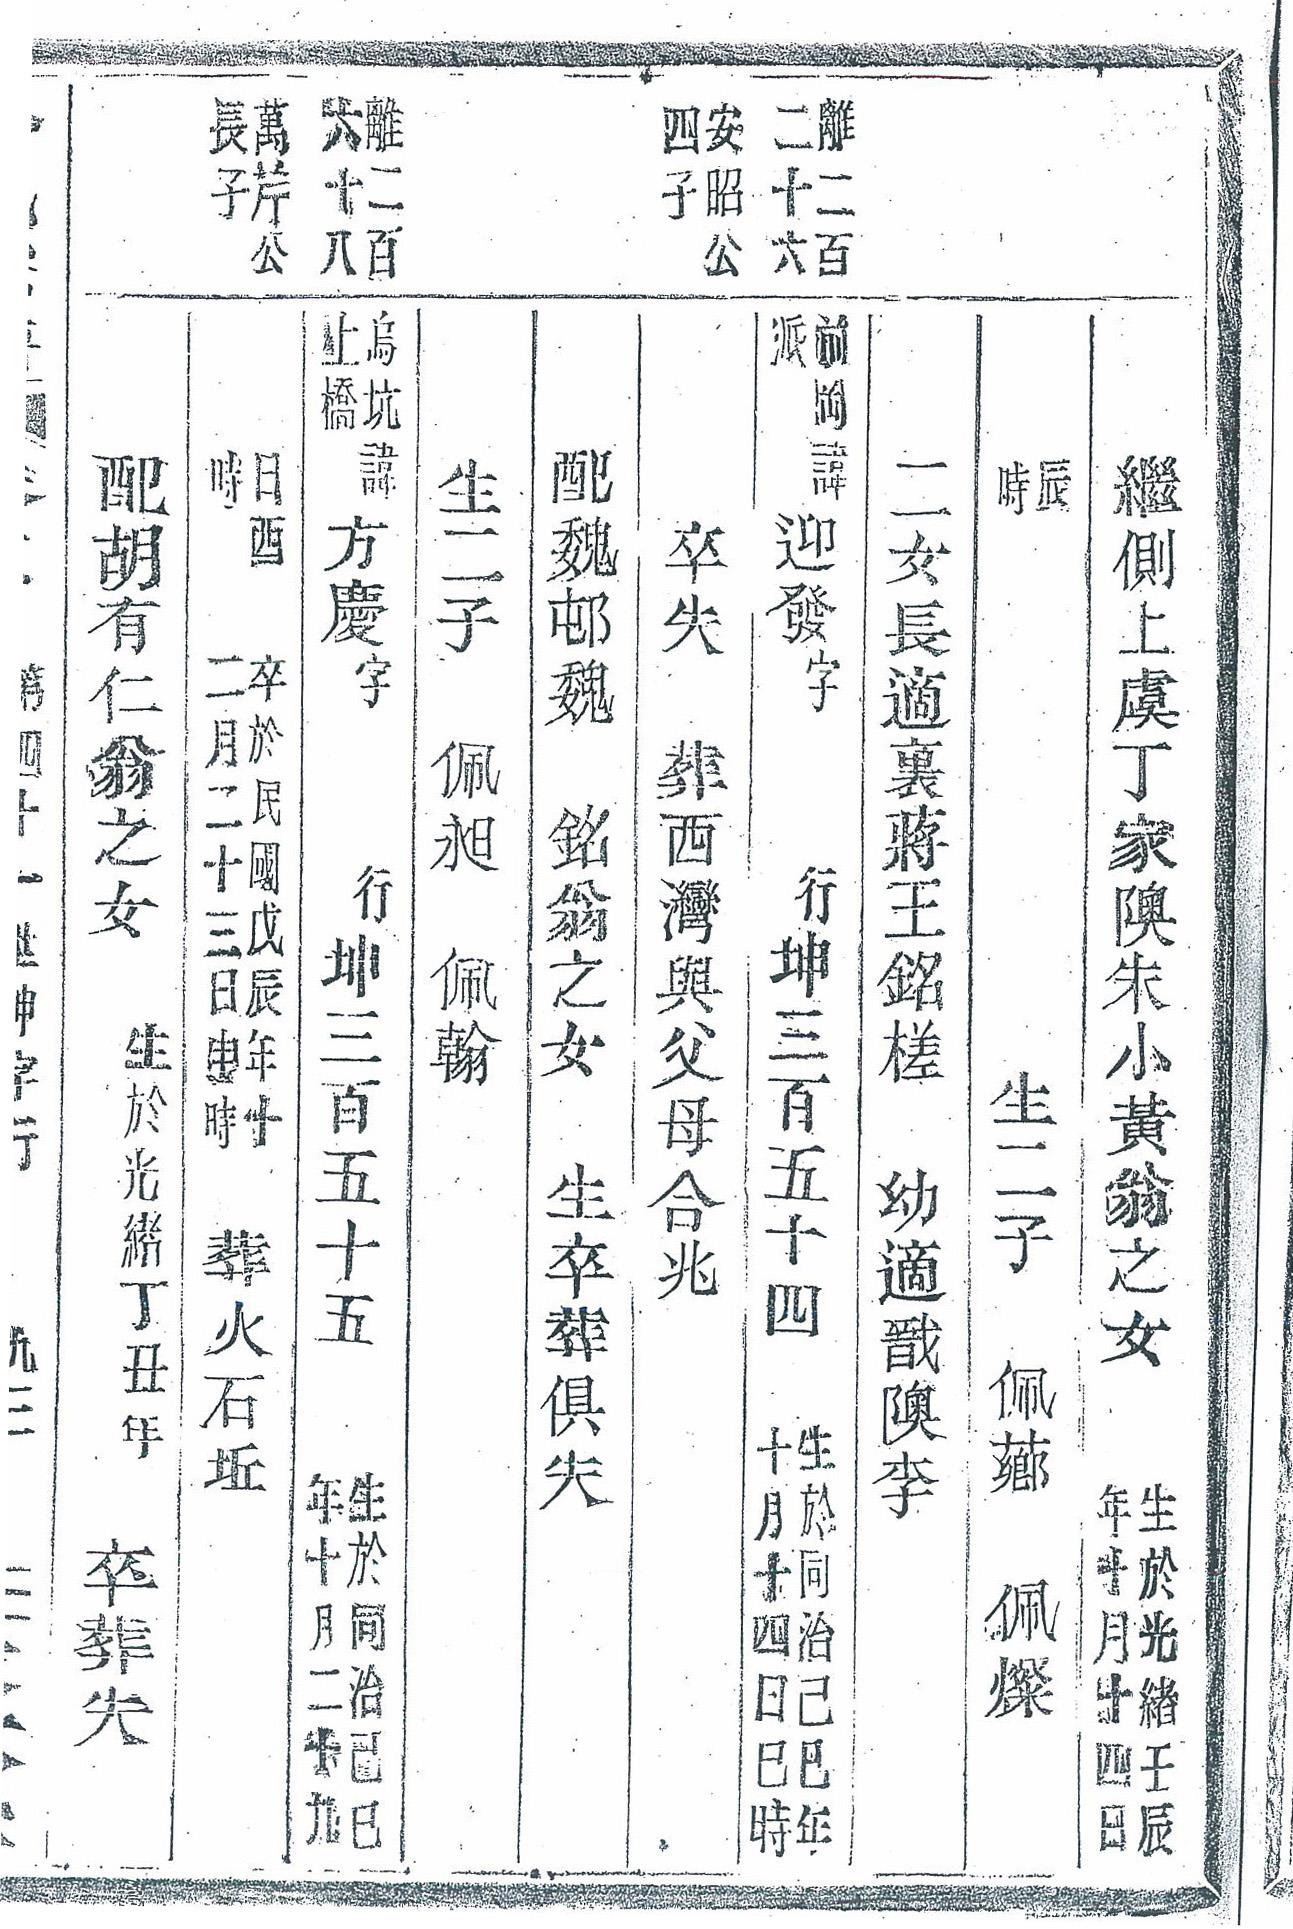 繼側上虞丁家隩朱小黃翁之女
生於光緒壬辰
年十月廿四日
辰
時
生二子 佩薌 佩燦
二女長適裏蔣王銘槎 幼適戩隩李
離二百
二十六
安昭公
四子
前岡
派
諱迎發字 行坤三百五十四
生於同治己巳年
十月十四日巳時
卒失 葬西灣與父母合兆
配魏邨魏 銘翁之女 生卒葬俱失
生二子 佩昶 佩翰
離二百
六十八
萬芹公
長子
烏坑
上橋
諱方慶字 行坤三百五十五
生於同治己巳
年十月二十九
日酉
時
卒於民國戊辰年十
二月二十三日申時
葬火石坵
配胡有仁翁之女
生於光緒丁丑年
卒葬失
第四十一世坤字行
九三